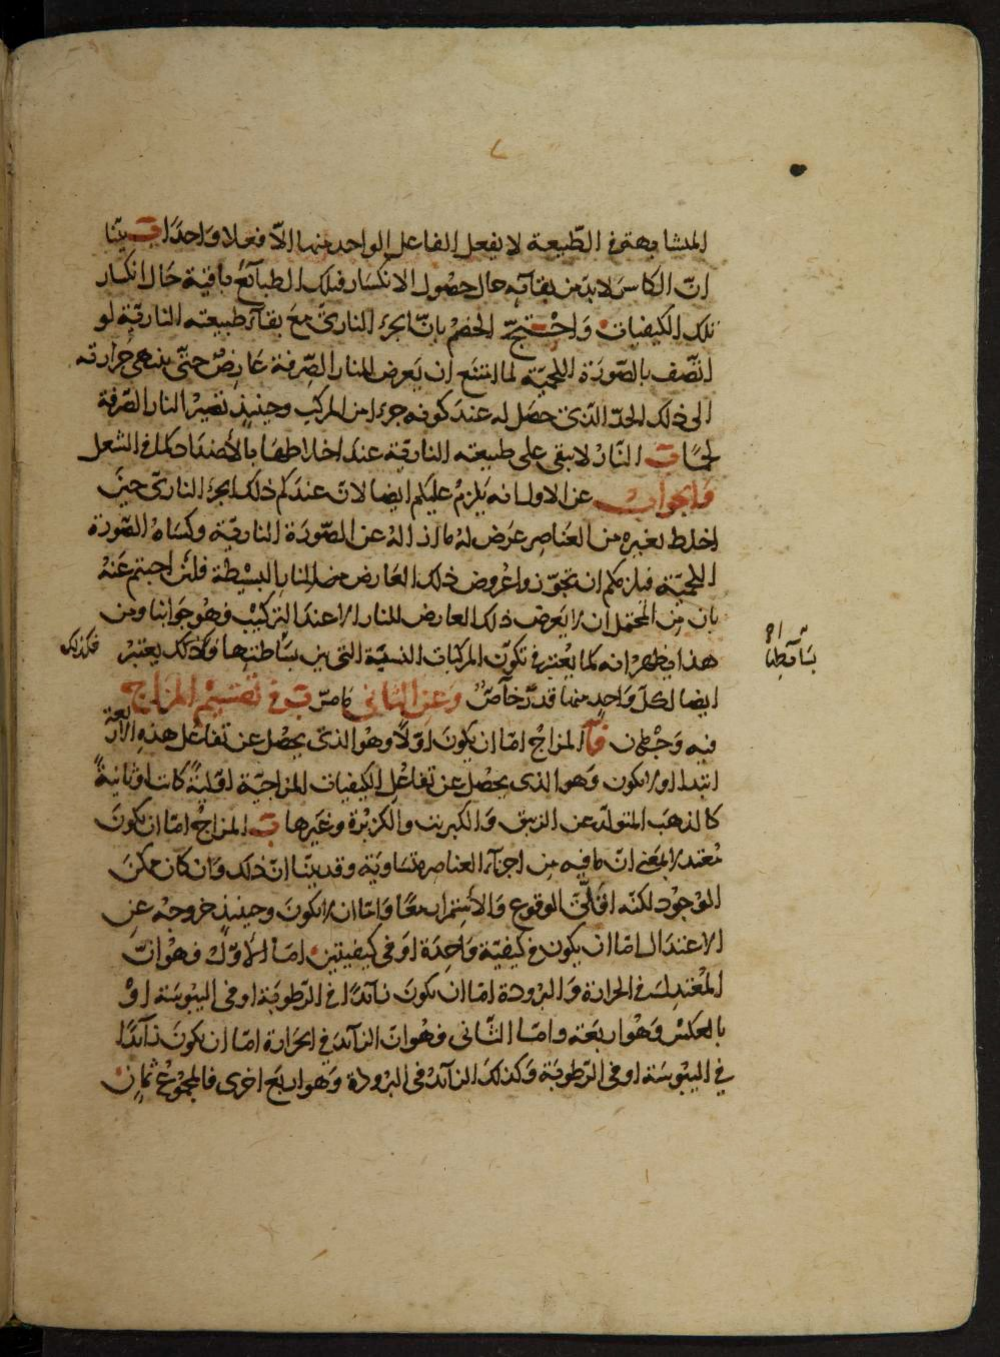 المتشابهة في الطبيعة لا يفعل الفاعل الواحد منها الا فعلا واحدا ب بينا
ان الكاسر لا بد من بقائه حال حصول الانكسار فتلك الطبائع باقية حال انكسار
تلك الكيفيات واحتج الخصم بان الجزء الناري مع بقاء طبيعته النارية لو
اتصف بالصورة اللحمية لما امتنع ان يعرض للنار الصرفة عارض حتى ينتهى حرارته
الى ذلك الحد الذي حصل له عند كونه جزءا من المركب وحينئذ تصير النار الصرفة
لحما ب النار لا يبقى على طبيعته النارية عند اختلاطها بالأضداد كما في الشعل
والجواب عن الاول انه يلزم عليكم ايضا لان عندكم ذلك الجزء الناري حين
اختلط بغيره من العناصر عرض له ما ازاله عن الصورة النارية وكساه الصورة
اللحمية فيلزمكم ان تجوزوا عروض ذلك العارض للنار البسيطة فلئن اجبتم عنه
بان من المحتمل ان لا يعرض ذلك العارض للنار الا عند التركيب فهو جوابنا ومن
هذا يظهر انه كما يعتبر في تكون المركبات النسبة التي بين بسائطها فكذلك يعتبر
فكذلك
بسائطها
ايضا لكل واحد منها قدر خاص وعن الثاني ما مر ب في تقسيم المزاج
فيه وجهان آ المزاج اما ان يكون اولا وهو الذي يحصل عن تفاعل هذه الاربعة
ابتداء او لا يكون وهو الذي يحصل عن تفاعل الكيفيات المزاجية اولية كانت او ثانية
كالذهب المتولد عن الزيبق والكبريت والكزبرة وغيرها ب المزاج اما ان يكون
معتدلا بمعنى ان ما فيه من اجزاء العناصر متساوية وقد بينا ان ذلك وان كان ممكن
الوجود لكنه اقلي الوقوع والاستمرار معا واما ان لا يكون وحينئذ خروجه عن
الاعتدال اما ان يكون في كيفية واحدة او في كيفيتين اما الاول فهو ان
المعتدل في الحرارة والبرودة اما ان يكون زائدا في الرطوبة او في اليبوسة او
بالعكس وهو اربعة واما الثاني فهو ان الزائد في الحرارة اما ان يكون زائدا
في اليبوسة او في الرطوبة وكذلك الزائد في البرودة وهو اربع اخرى فالمجموع ثمان